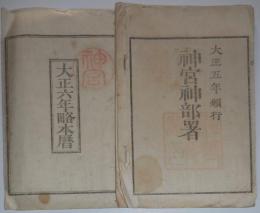 大正五年頒行
神宮神部署
神宮
大正六年略本暦